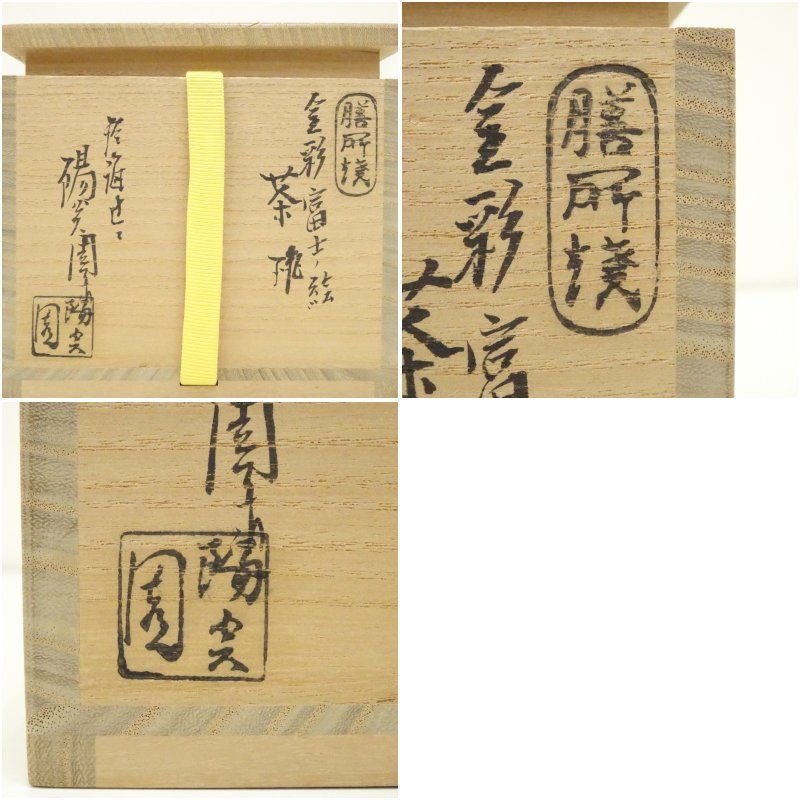 膳所焼
金彩 富士ノ絵
茶碗
陽炎園
陽炎園
膳所焼
金彩 富
茶
園
陽炎園